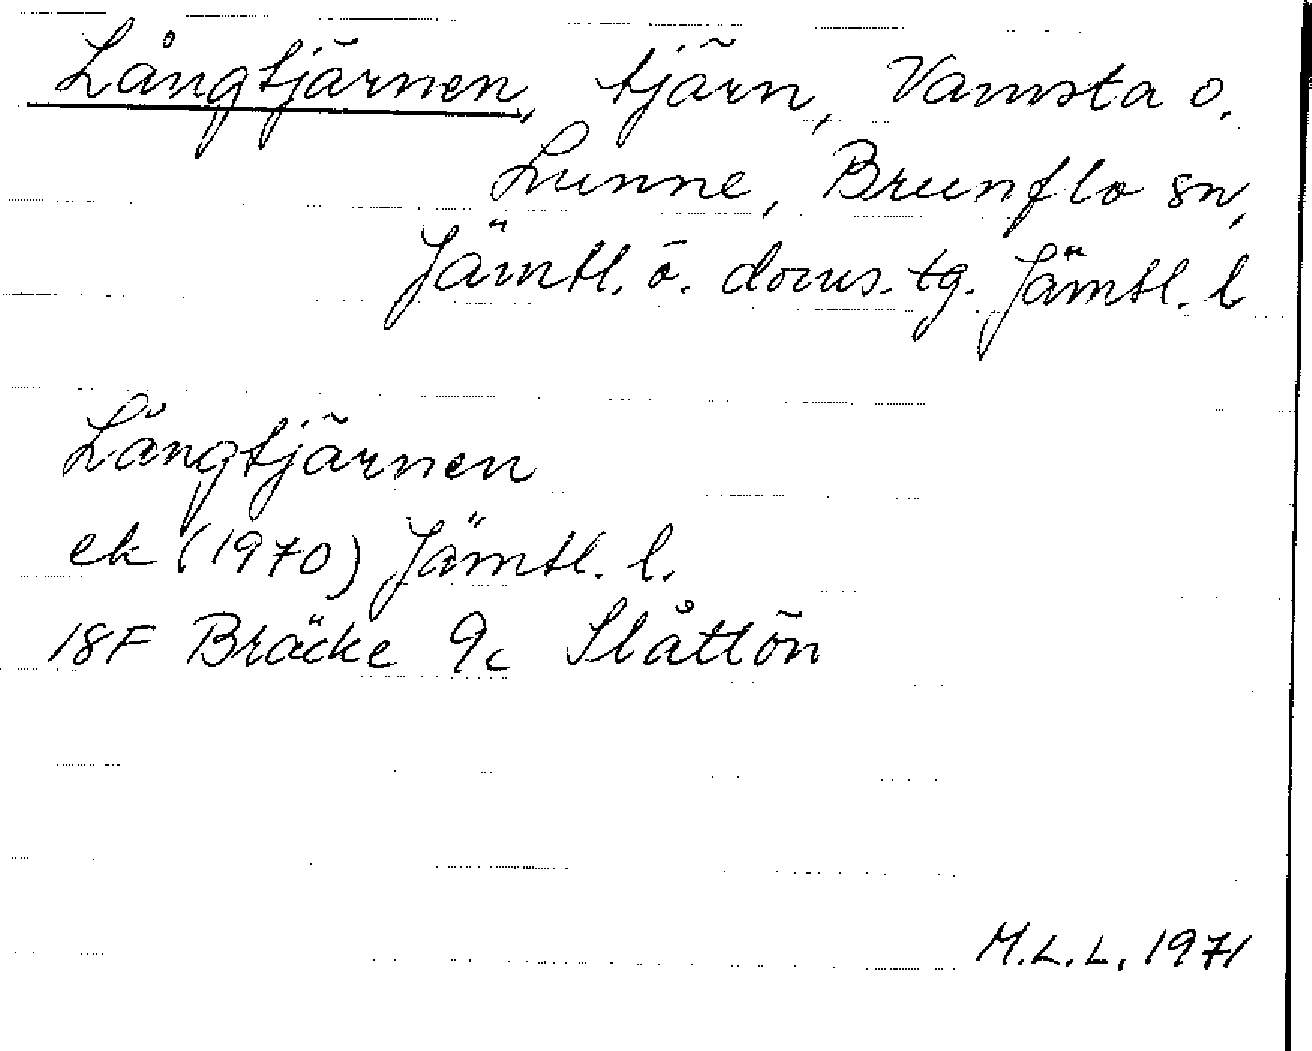 Långtjärnen, tjärn, Vamsta o.
Lunne, Brunflo sn,
Jämtl. ö. doms. tg. Jämtl. l
Långtjärnen
ek (1970) Jämtl. l.
18F Bräcke 9c Slåttön
M.L.L. 1971